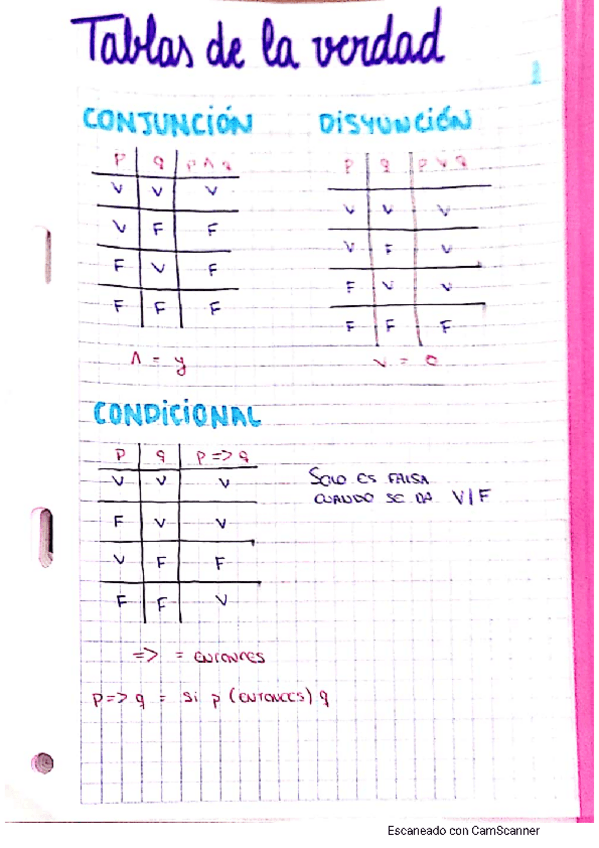 Tablas de la verdad
1
CONJUNCIÓN
P q p ∧ q
V V V
V F F
F V F
F F F
∧ = y
DISYUNCIÓN
P q p ∨ q
V V V
V F V
F V V
F F F
∨ = o
CONDICIONAL
P q p => q
V V V
F V V
V F F
F F V
SOLO ES FALSA
CUANDO SE DA V/F
=> = ENTONCES
p => q = Si p (ENTONCES) q
Escaneado con CamScanner